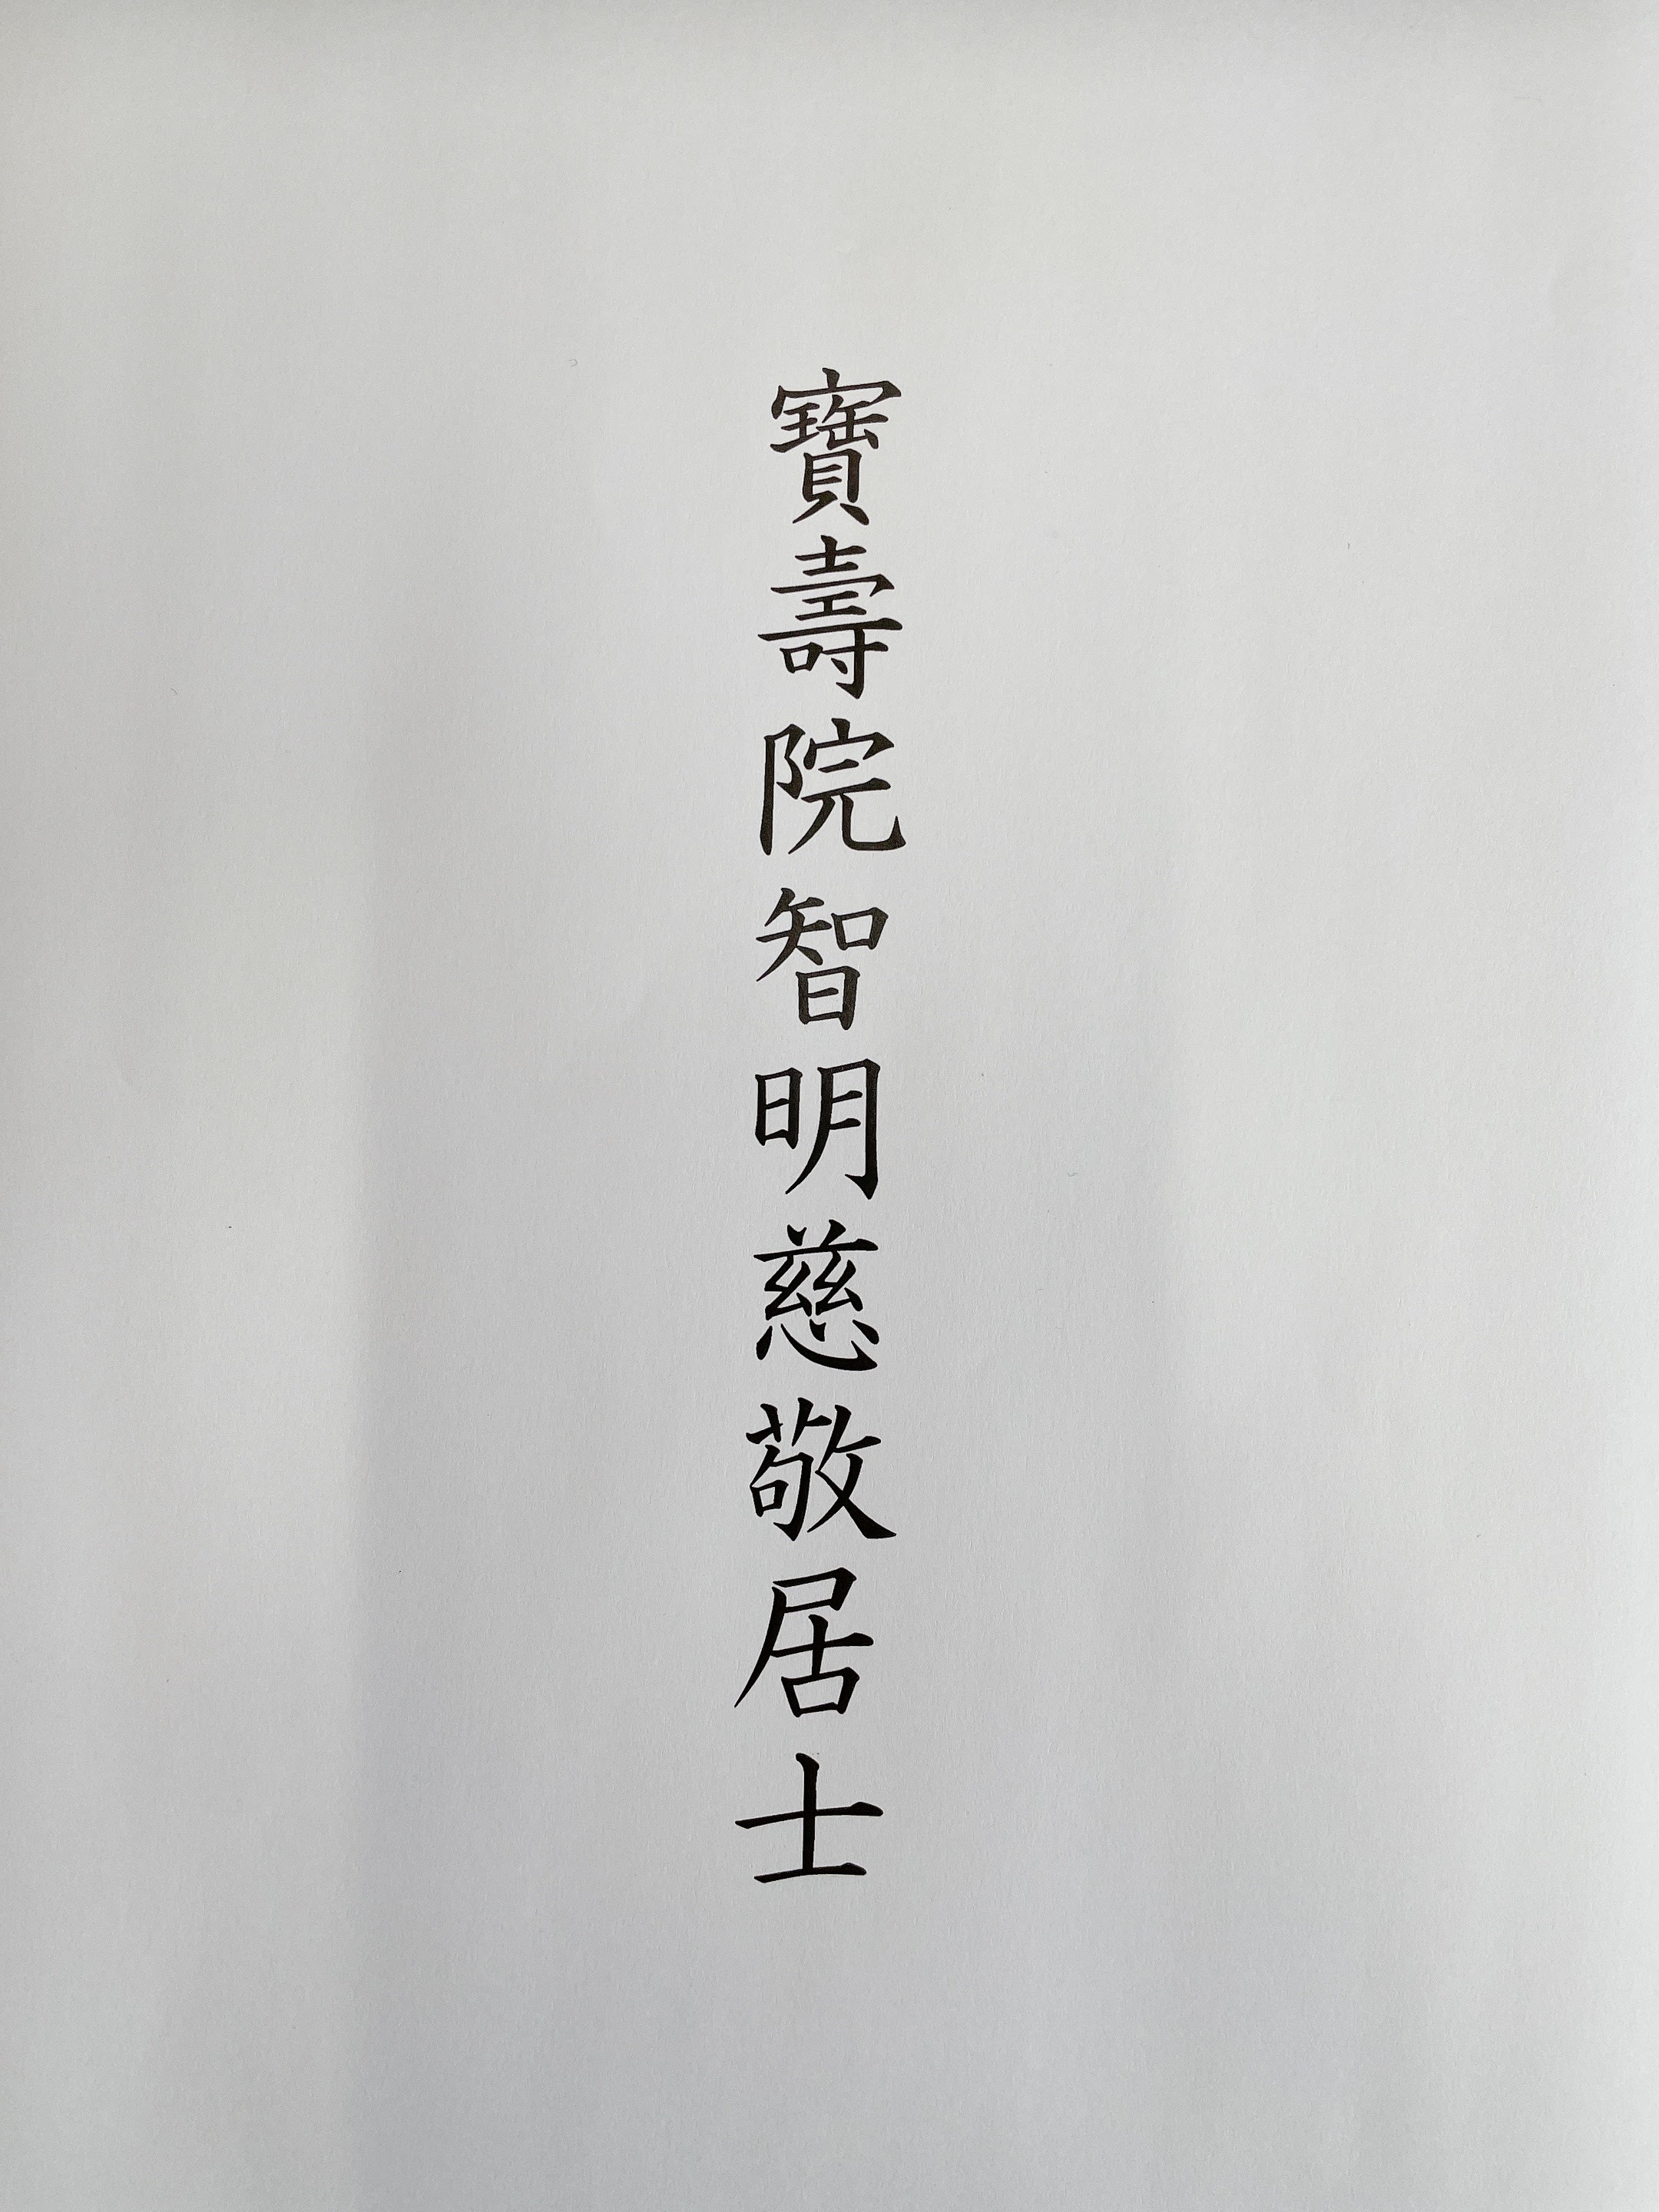 寶壽院智明慈敬居士